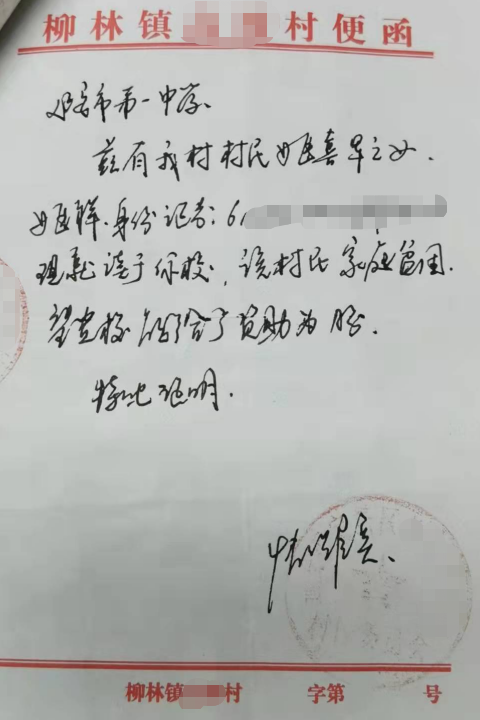 柳林镇 村便函
市第一中学.
兹有我村村民姬喜早之女.
姬 身份证号: 6
现就读于你校, 该村民家庭贫困.
望贵校 给予资助为盼.
特此证明.
情况属实、
柳林镇 村 字第 号